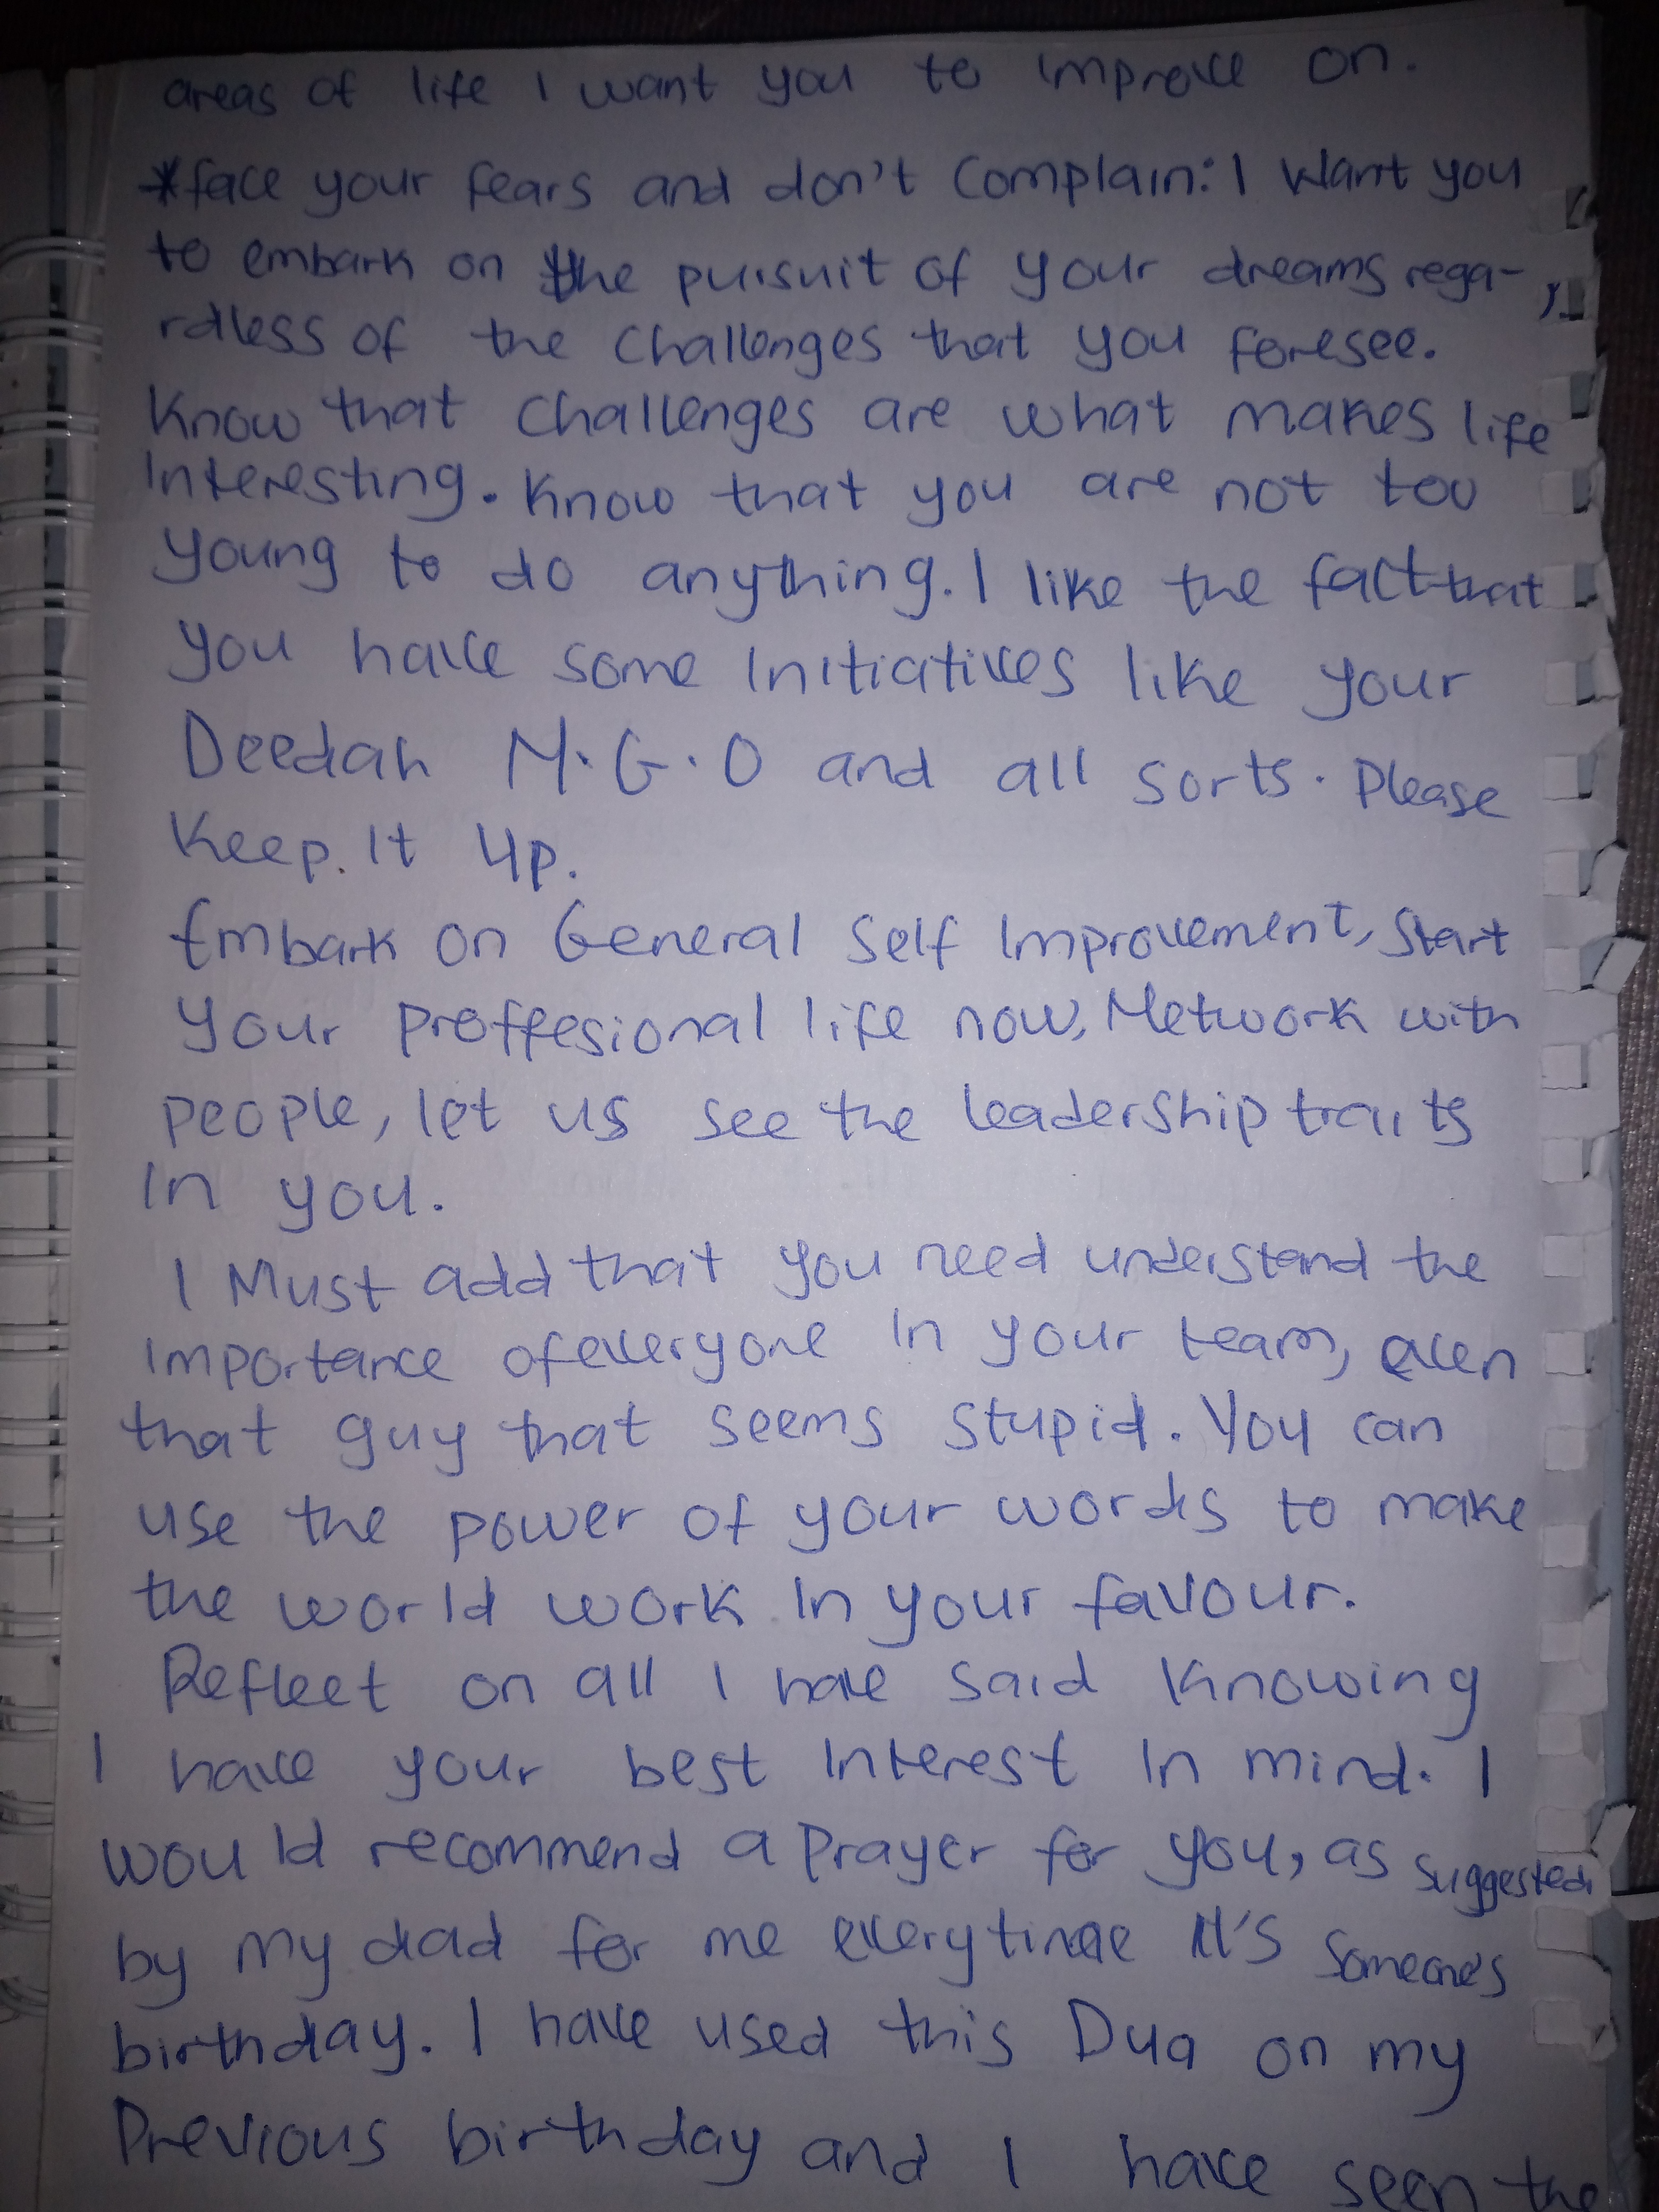 areas of life I want you to improve on.
*face your fears and don't complain: I want you
to embark on the pursuit of your dreams rega-
rdless of the challenges that you foresee.
Know that challenges are what makes life
Interesting. Know that you are not too
young to do anything. I like the fact that
you have some Initiatives like your
Deedah N.G.O and all sorts. Please
Keep It up.
Embark on General Self Improvement, Start
your proffesional life now, Network with
people, let us see the leadership traits
In you.
I Must add that you need understand the
Importance of everyone In your team, even
that guy that seems stupid. You can
use the power of your words to make
the world work In your favour.
Reflect on all I have said Knowing
I have your best Interest In mind. I
would recommend a Prayer for you, as suggested
by my dad for me everytime It's Someone's
birthday. I have used this Dua on my
Previous birthday and I have seen the